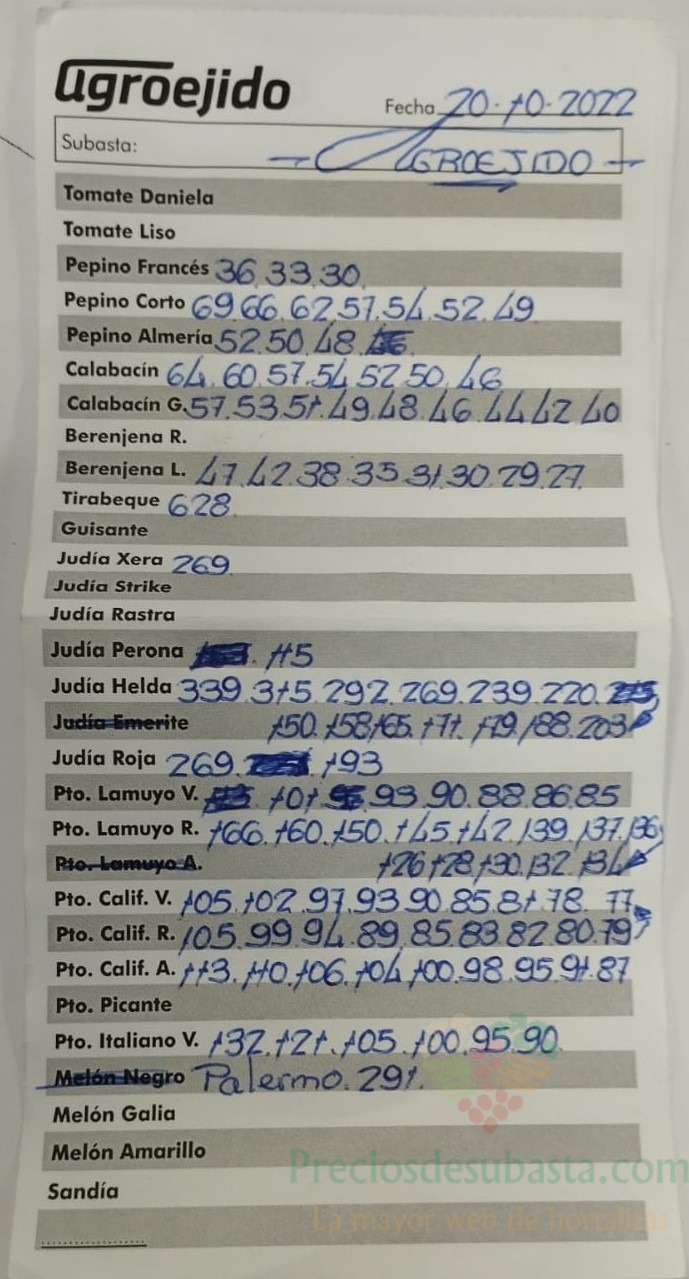 agroejido
Fecha 20-10-2022
Subasta: AGROEJIDO
Tomate Daniela
Tomate Liso
Pepino Francés 36.33.30
Pepino Corto 69.66.62.57.54.52.49
Pepino Almería 52.50.48
Calabacín 64.60.57.54.52.50.46
Calabacín G. 57.53.51.49.48.46.44.42.40
Berenjena R.
Berenjena L. 47.42.38.35.31.30.29.27
Tirabeque 628
Guisante
Judía Xera 269
Judía Strike
Judía Rastra
Judía Perona 115
Judía Helda 339.315.292.269.239.220.
Judía Emerite 150.158.165.171.179.188.203
Judía Roja 269. 193
Pto. Lamuyo V. 101. 93.90.88.86.85
Pto. Lamuyo R. 166.160.150.145.142.139.137.136
Pto. Lamuyo A. 126.128.130.132.134
Pto. Calif. V. 105.102.97.93.90.85.81.78.77
Pto. Calif. R. 105.99.94.89.85.83.82.80.79
Pto. Calif. A. 113.110.106.104.100.98.95.91.87
Pto. Picante
Pto. Italiano V. 132.121.105.100.95.90
Melón Negro Palermo.291.
Melón Galia
Melón Amarillo
Preciosdesubasta.com
Sandía
La mayor web de hortalizas